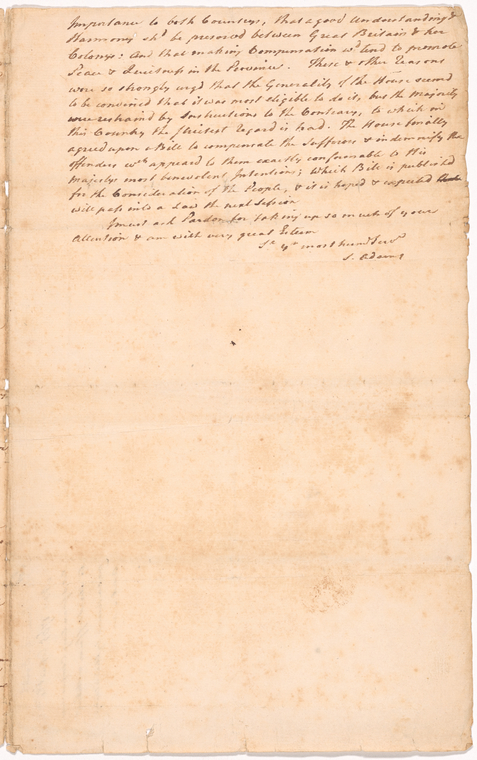 Importance to both Countrys, that a good Understanding &
Harmony shd be preserved between Great Britain & her
Colonys: And that making Compensation wd tend to promote
Peace & Quietness in the Province. These & other Reasons
were so strongly urgd that the Generality of the House seemd
to be convinced that it was most eligible to do it, but the Majority
were restraind by Instructions to the Contrary, to which in
this Country the strictest regard is had. The House finally
agreed upon a Bill to compensate the Sufferers & indemnify the
offenders wch appeared to them exactly conformable to his
Majestys most benevolent Intentions; Which Bill is published
for the Consideration of the People, & it is hoped & expected
will pass into a Law the next Session
I must ask Pardon for taking up so much of your
Attention & am with very great Esteem
Sr yr most hum Serv
S. Adams